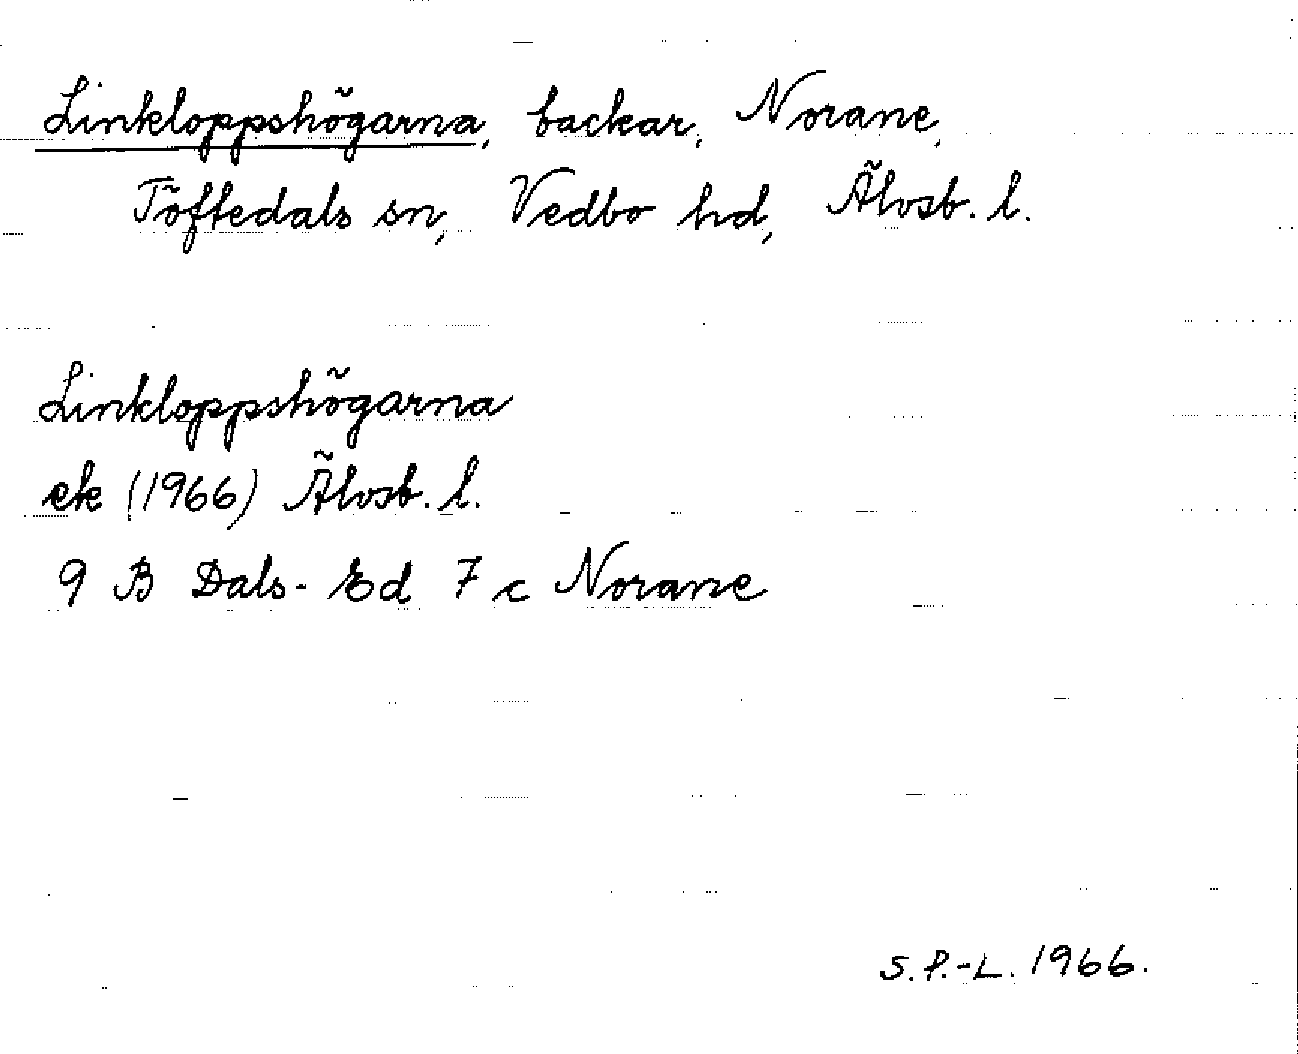 Linkloppshögarna, backar, Norane,
Töftedals sn, Vedbo hd, Älvsb. l.
Linkloppshögarna
ek (1966) Älvsb. l.
9 B Dals-Ed 7 c Norane
S.P.-L. 1966.